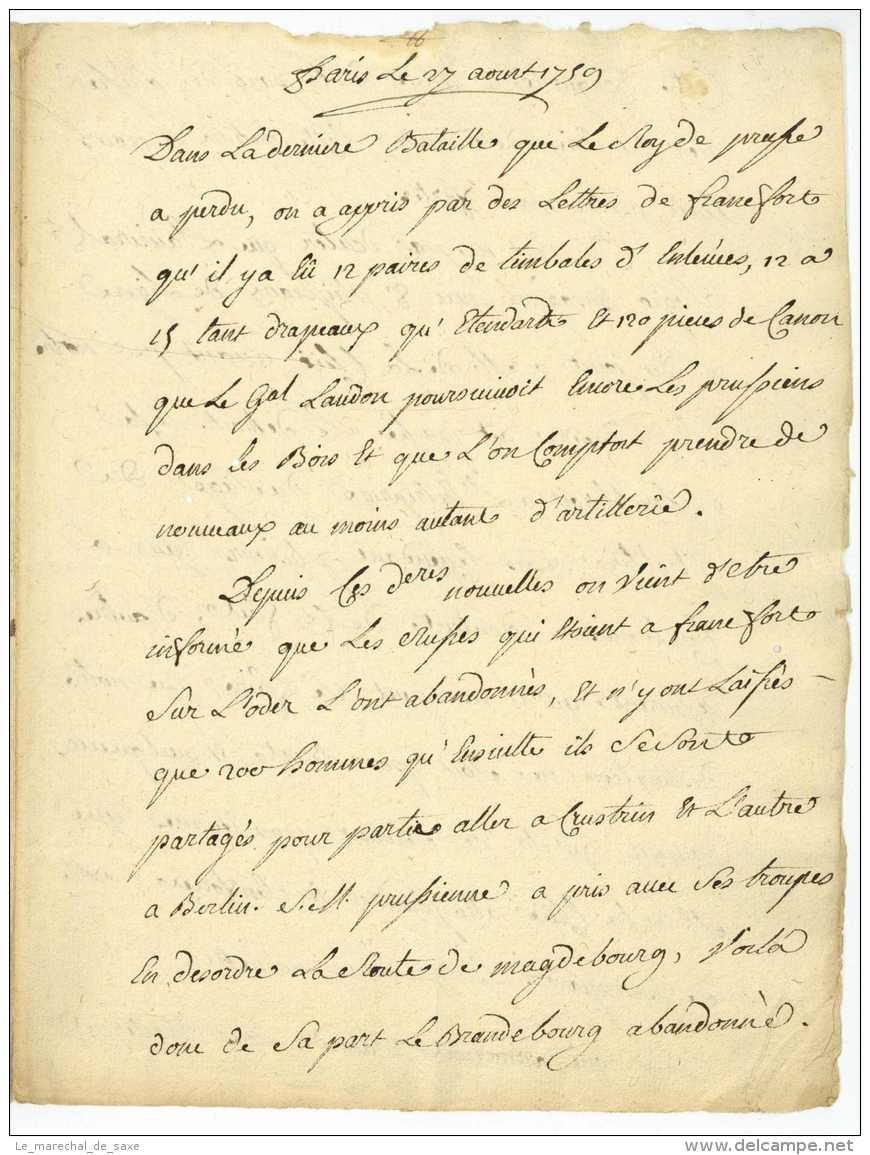 Paris Le 27 aoust 1759
Dans La derniere Bataille que Le Roy de prusse
a perdu, on a appris par des Lettres de francfort
qu'il y a Eû 12 paires de timbales d'Enleveés, 12 a
15 tant drapeaux qu'Etendarts Et 120 pieces de Canon
que Le Gal Laudon poursuivoit Encore Les prussiens
dans les Bois Et que L'on Comptoit prendre de
nouveaux au moins autant d'artillerie.
Depuis Ces deres nouvelles on vient d'Etre
informé que Les Russes qui Etoient a francfort
Sur L'oder L'ont abandonnés, Et n'y ont Laissés
que 200 hommes qu'Ensuitte ils Se Sont
partagés pour partie aller a Custrin Et L'autre
a Berlin. S. M. prussienne a pris avec Ses troupes
En desordre La Route de magdebourg, Voila
donc de Sa part Le Brandebourg abandonné.
Le_marechal_de_saxe
delcampe.net